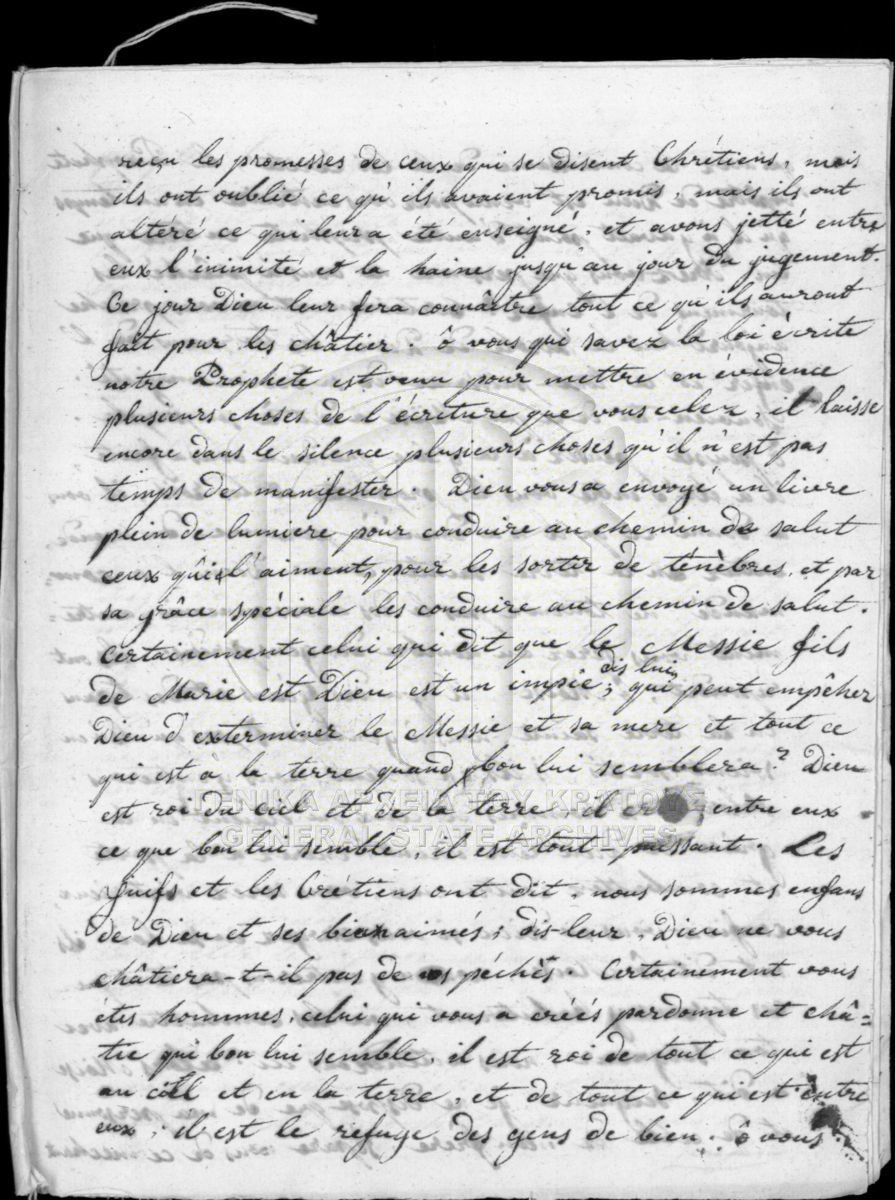 reçu les promesses de ceux qui se disent Chrétiens, mais
ils ont oublié ce qu'ils avaient promis, mais ils ont
altéré ce qui leur a été enseigné, et avons jetté entre
eux l'inimité et la haine jusqu'au jour du jugement.
Ce jour Dieu leur fera connâitre tout ce qu'ils auront
fait pour les châtier. ô vous qui savez la loi écrite
notre Prophete est venu pour mettre en évidence
plusieurs choses de l'écriture que vous celez, il laisse
encore dans le silence plusieurs choses qu'il n'est pas
temps de manifester. Dieu vous a envoyé un livre
plein de lumiere pour conduire au chemin de salut
ceux qui l'aiment, pour les sortir de ténèbres, et par
sa grâce spéciale les conduire au chemin de salut.
Certainement celui qui dit que le Messie fils
de Marie est Dieu est un impie; dis lui, qui peut empêcher
Dieu d'exterminer le Messie et sa mere et tout ce
qui est à la terre quand bon lui semblera? Dieu
est roi du ciel et de la terre, il entre eux
ce que bon lui semble, il est tout-puissant. Les
Juifs et les Crétiens ont dit, nous sommes enfans
de Dieu et ses bienaimés; dis-leur, Dieu ne vous
châtiera-t-il pas de péchés. Certainement vous
étes hommes, celui qui vous a créés pardonne et châ=
tie qui bon lui semble, il est roi de tout ce qui est
au ciel et en la terre, et de tout ce qui est entre
eux, il est le refuge des gens de bien. ô vous
ΓΕΝΙΚΑ ΑΡΧΕΙΑ ΤΟΥ ΚΡΑΤΟΥΣ
GENERAL STATE ARCHIVES